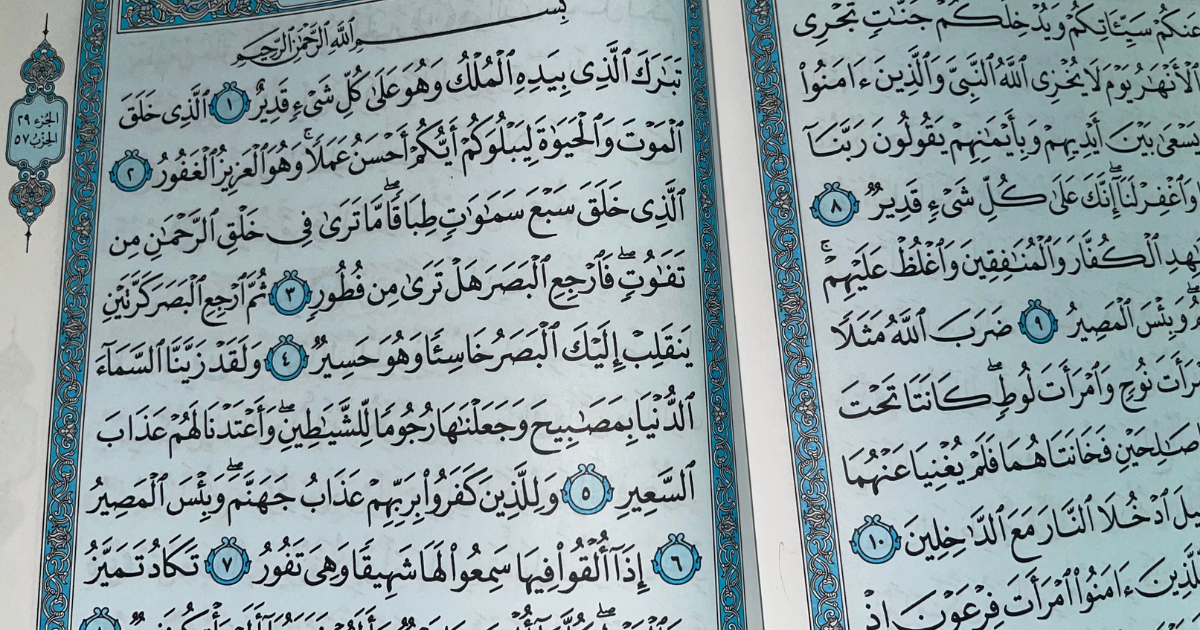 عَنكُمْ سَيِّـَٔاتِكُمْ وَيُدْخِلَكُمْ جَنَّـٰتٍ تَجْرِى
ٱلْأَنْهَـٰرُ يَوْمَ لَا يُخْزِى ٱللَّهُ ٱلنَّبِىَّ وَٱلَّذِينَ ءَامَنُوا۟
يَسْعَىٰ بَيْنَ أَيْدِيهِمْ وَبِأَيْمَـٰنِهِمْ يَقُولُونَ رَبَّنَآ
وَٱغْفِرْ لَنَآ ۖ إِنَّكَ عَلَىٰ كُلِّ شَىْءٍ قَدِيرٌ ٨
ٱلْكُفَّارَ وَٱلْمُنَـٰفِقِينَ وَٱغْلُظْ عَلَيْهِمْ ۚ
وَبِئْسَ ٱلْمَصِيرُ ٩ ضَرَبَ ٱللَّهُ مَثَلًا
نُوحٍ وَٱمْرَأَتَ لُوطٍ ۖ كَانَتَا تَحْتَ
صَـٰلِحَيْنِ فَخَانَتَاهُمَا فَلَمْ يُغْنِيَا عَنْهُمَا
ٱدْخُلَا ٱلنَّارَ مَعَ ٱلدَّٰخِلِينَ ١٠
ءَامَنُوا۟ ٱمْرَأَتَ فِرْعَوْنَ إِذْ
بِسْمِ ٱللَّهِ ٱلرَّحْمَـٰنِ ٱلرَّحِيمِ
تَبَـٰرَكَ ٱلَّذِى بِيَدِهِ ٱلْمُلْكُ وَهُوَ عَلَىٰ كُلِّ شَىْءٍ قَدِيرٌ ١ ٱلَّذِى خَلَقَ
ٱلْمَوْتَ وَٱلْحَيَوٰةَ لِيَبْلُوَكُمْ أَيُّكُمْ أَحْسَنُ عَمَلًا ۚ وَهُوَ ٱلْعَزِيزُ ٱلْغَفُورُ ٢
ٱلَّذِى خَلَقَ سَبْعَ سَمَـٰوَٰتٍ طِبَاقًا ۖ مَّا تَرَىٰ فِى خَلْقِ ٱلرَّحْمَـٰنِ مِن
تَفَـٰوُتٍ ۖ فَٱرْجِعِ ٱلْبَصَرَ هَلْ تَرَىٰ مِن فُطُورٍ ٣ ثُمَّ ٱرْجِعِ ٱلْبَصَرَ كَرَّتَيْنِ
يَنقَلِبْ إِلَيْكَ ٱلْبَصَرُ خَاسِئًا وَهُوَ حَسِيرٌ ٤ وَلَقَدْ زَيَّنَّا ٱلسَّمَآءَ
ٱلدُّنْيَا بِمَصَـٰبِيحَ وَجَعَلْنَـٰهَا رُجُومًا لِّلشَّيَـٰطِينِ ۖ وَأَعْتَدْنَا لَهُمْ عَذَابَ
ٱلسَّعِيرِ ٥ وَلِلَّذِينَ كَفَرُوا۟ بِرَبِّهِمْ عَذَابُ جَهَنَّمَ ۖ وَبِئْسَ ٱلْمَصِيرُ
٦ إِذَآ أُلْقُوا۟ فِيهَا سَمِعُوا۟ لَهَا شَهِيقًا وَهِىَ تَفُورُ ٧ تَكَادُ تَمَيَّزُ
الجزء ٢٩
الحزب ٥٧